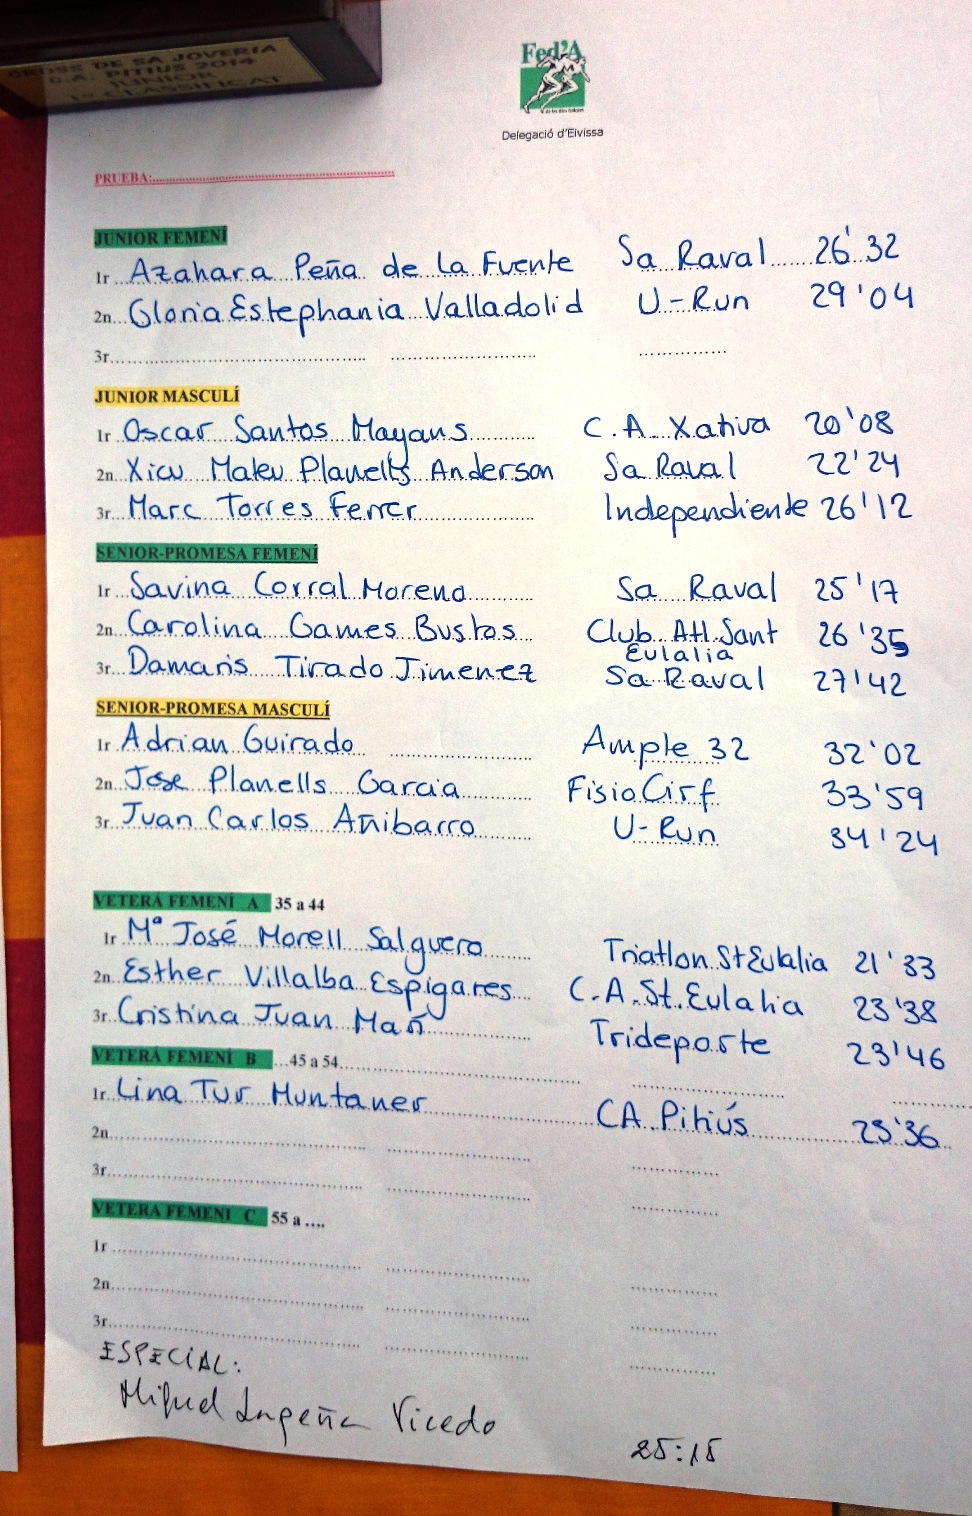 CROSS DE SA JOVERIA
C.A. PITIUS 2014
JUNIOR
1º CLASSIFICAT
Fed'A
Delegació d'Eivissa
PRUEBA:
JUNIOR FEMENÍ
1r Azahara Peña de La Fuente Sa Raval 26'32
2n Gloria Estephania Valladolid U-Run 29'04
3r
JUNIOR MASCULÍ
1r Oscar Santos Mayans C.A Xativa 20'08
2n Xicu Mateu Planells Anderson Sa Raval 22'24
3r Marc Torres Ferrer Independiente 26'12
SENIOR-PROMESA FEMENÍ
1r Savina Corral Moreno Sa Raval 25'17
2n Carolina Games Bustos Club Atl. Sant Eulalia 26'35
3r Damaris Tirado Jimenez Sa Raval 27'42
SENIOR-PROMESA MASCULÍ
1r Adrian Guirado Ample 32 32'02
2n Jose Planells Garcia FisioCirf 33'59
3r Juan Carlos Añibarro U-Run 34'24
VETERÀ FEMENÍ A 35 a 44
1r Mª José Morell Salguero Triatlon St Eulalia 21'33
2n Esther Villalba Espigares C.A. St. Eulalia 23'38
3r Cristina Juan Mañ Trideporte 23'46
VETERÀ FEMENÍ B 45 a 54
1r Lina Tur Muntaner CA Pitiús 25'36
2n
3r
VETERÀ FEMENÍ C 55 a ....
1r
2n
3r
ESPECIAL:
Miguel Vicedo 25:15